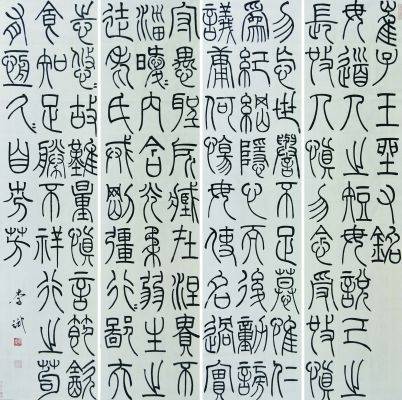 崔子玉座右銘
毋道人之短毋說己之
長施人慎勿念受施慎
勿忘世譽不足慕惟仁
為紀綱隱心而後動謗
議庸何傷毋使名過實
守愚聖所臧在涅貴不
淄曖〻內含光柔弱生之
徒老氏戒剛彊行〻鄙夫
志悠〻故難量慎言節飲
食知足勝不祥行之苟
有恆久〻自芬芳